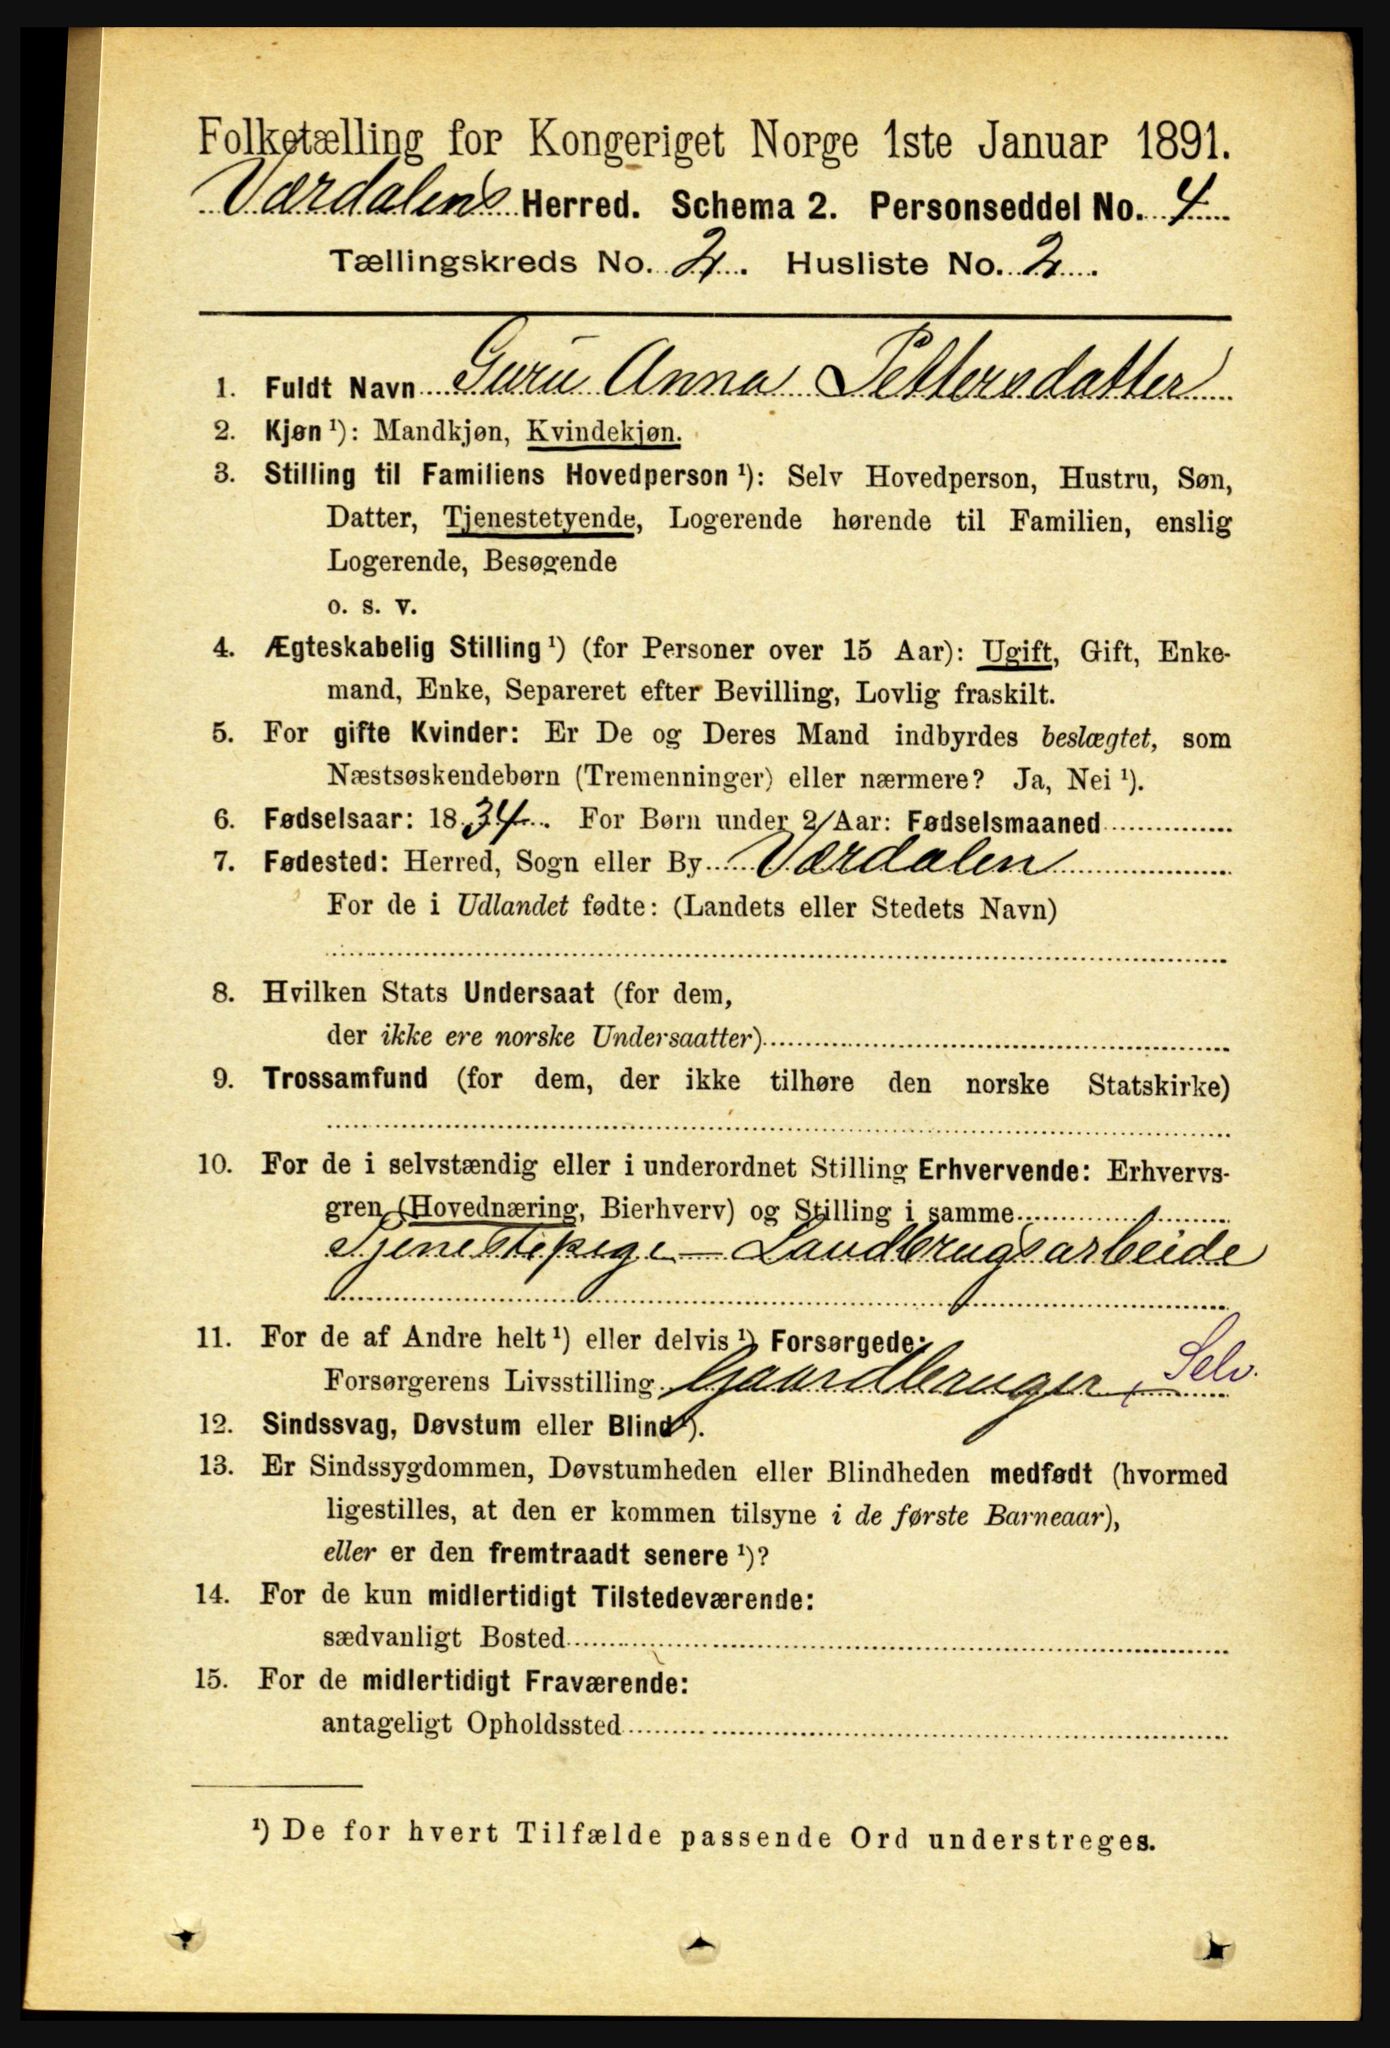 Folketælling for Kongeriget Norge 1ste Januar 1891.
Værdalens Herred. Schema 2. Personseddel No. 4
Tællingskreds No. 2. Husliste No. 2.
1. Fuldt Navn Guru Anna Pettersdatter
2. Kjøn ¹): Mandkjøn, Kvindekjøn.
3. Stilling til Familiens Hovedperson ¹): Selv Hovedperson, Hustru, Søn,
Datter, Tjenestetyende, Logerende hørende til Familien, enslig
Logerende, Besøgende
o. s. v.
4. Ægteskabelig Stilling ¹) (for Personer over 15 Aar): Ugift, Gift, Enke-
mand, Enke, Separeret efter Bevilling, Lovlig fraskilt.
5. For gifte Kvinder: Er De og Deres Mand indbyrdes beslægtet, som
Næstsøskendebørn (Tremenninger) eller nærmere? Ja, Nei ¹).
6. Fødselsaar: 1834. For Børn under 2 Aar: Fødselsmaaned
7. Fødested: Herred, Sogn eller By Værdalen
For de i Udlandet fødte: (Landets eller Stedets Navn)
8. Hvilken Stats Undersaat (for dem,
der ikke ere norske Undersaatter)
9. Trossamfund (for dem, der ikke tilhøre den norske Statskirke)
10. For de i selvstændig eller i underordnet Stilling Erhvervende: Erhvervs-
gren (Hovednæring, Bierhverv) og Stilling i samme
Tjenestepige – Landbrugsarbeide
11. For de af Andre helt ¹) eller delvis ¹) Forsørgede:
Forsørgerens Livsstilling Gaardbruger – Selv.
12. Sindssvag, Døvstum eller Blind ¹).
13. Er Sindssygdommen, Døvstumheden eller Blindheden medfødt (hvormed
ligestilles, at den er kommen tilsyne i de første Barneaar),
eller er den fremtraadt senere ¹)?
14. For de kun midlertidigt Tilstedeværende:
sædvanligt Bosted
15. For de midlertidigt Fraværende:
antageligt Opholdssted
¹) De for hvert Tilfælde passende Ord understreges.